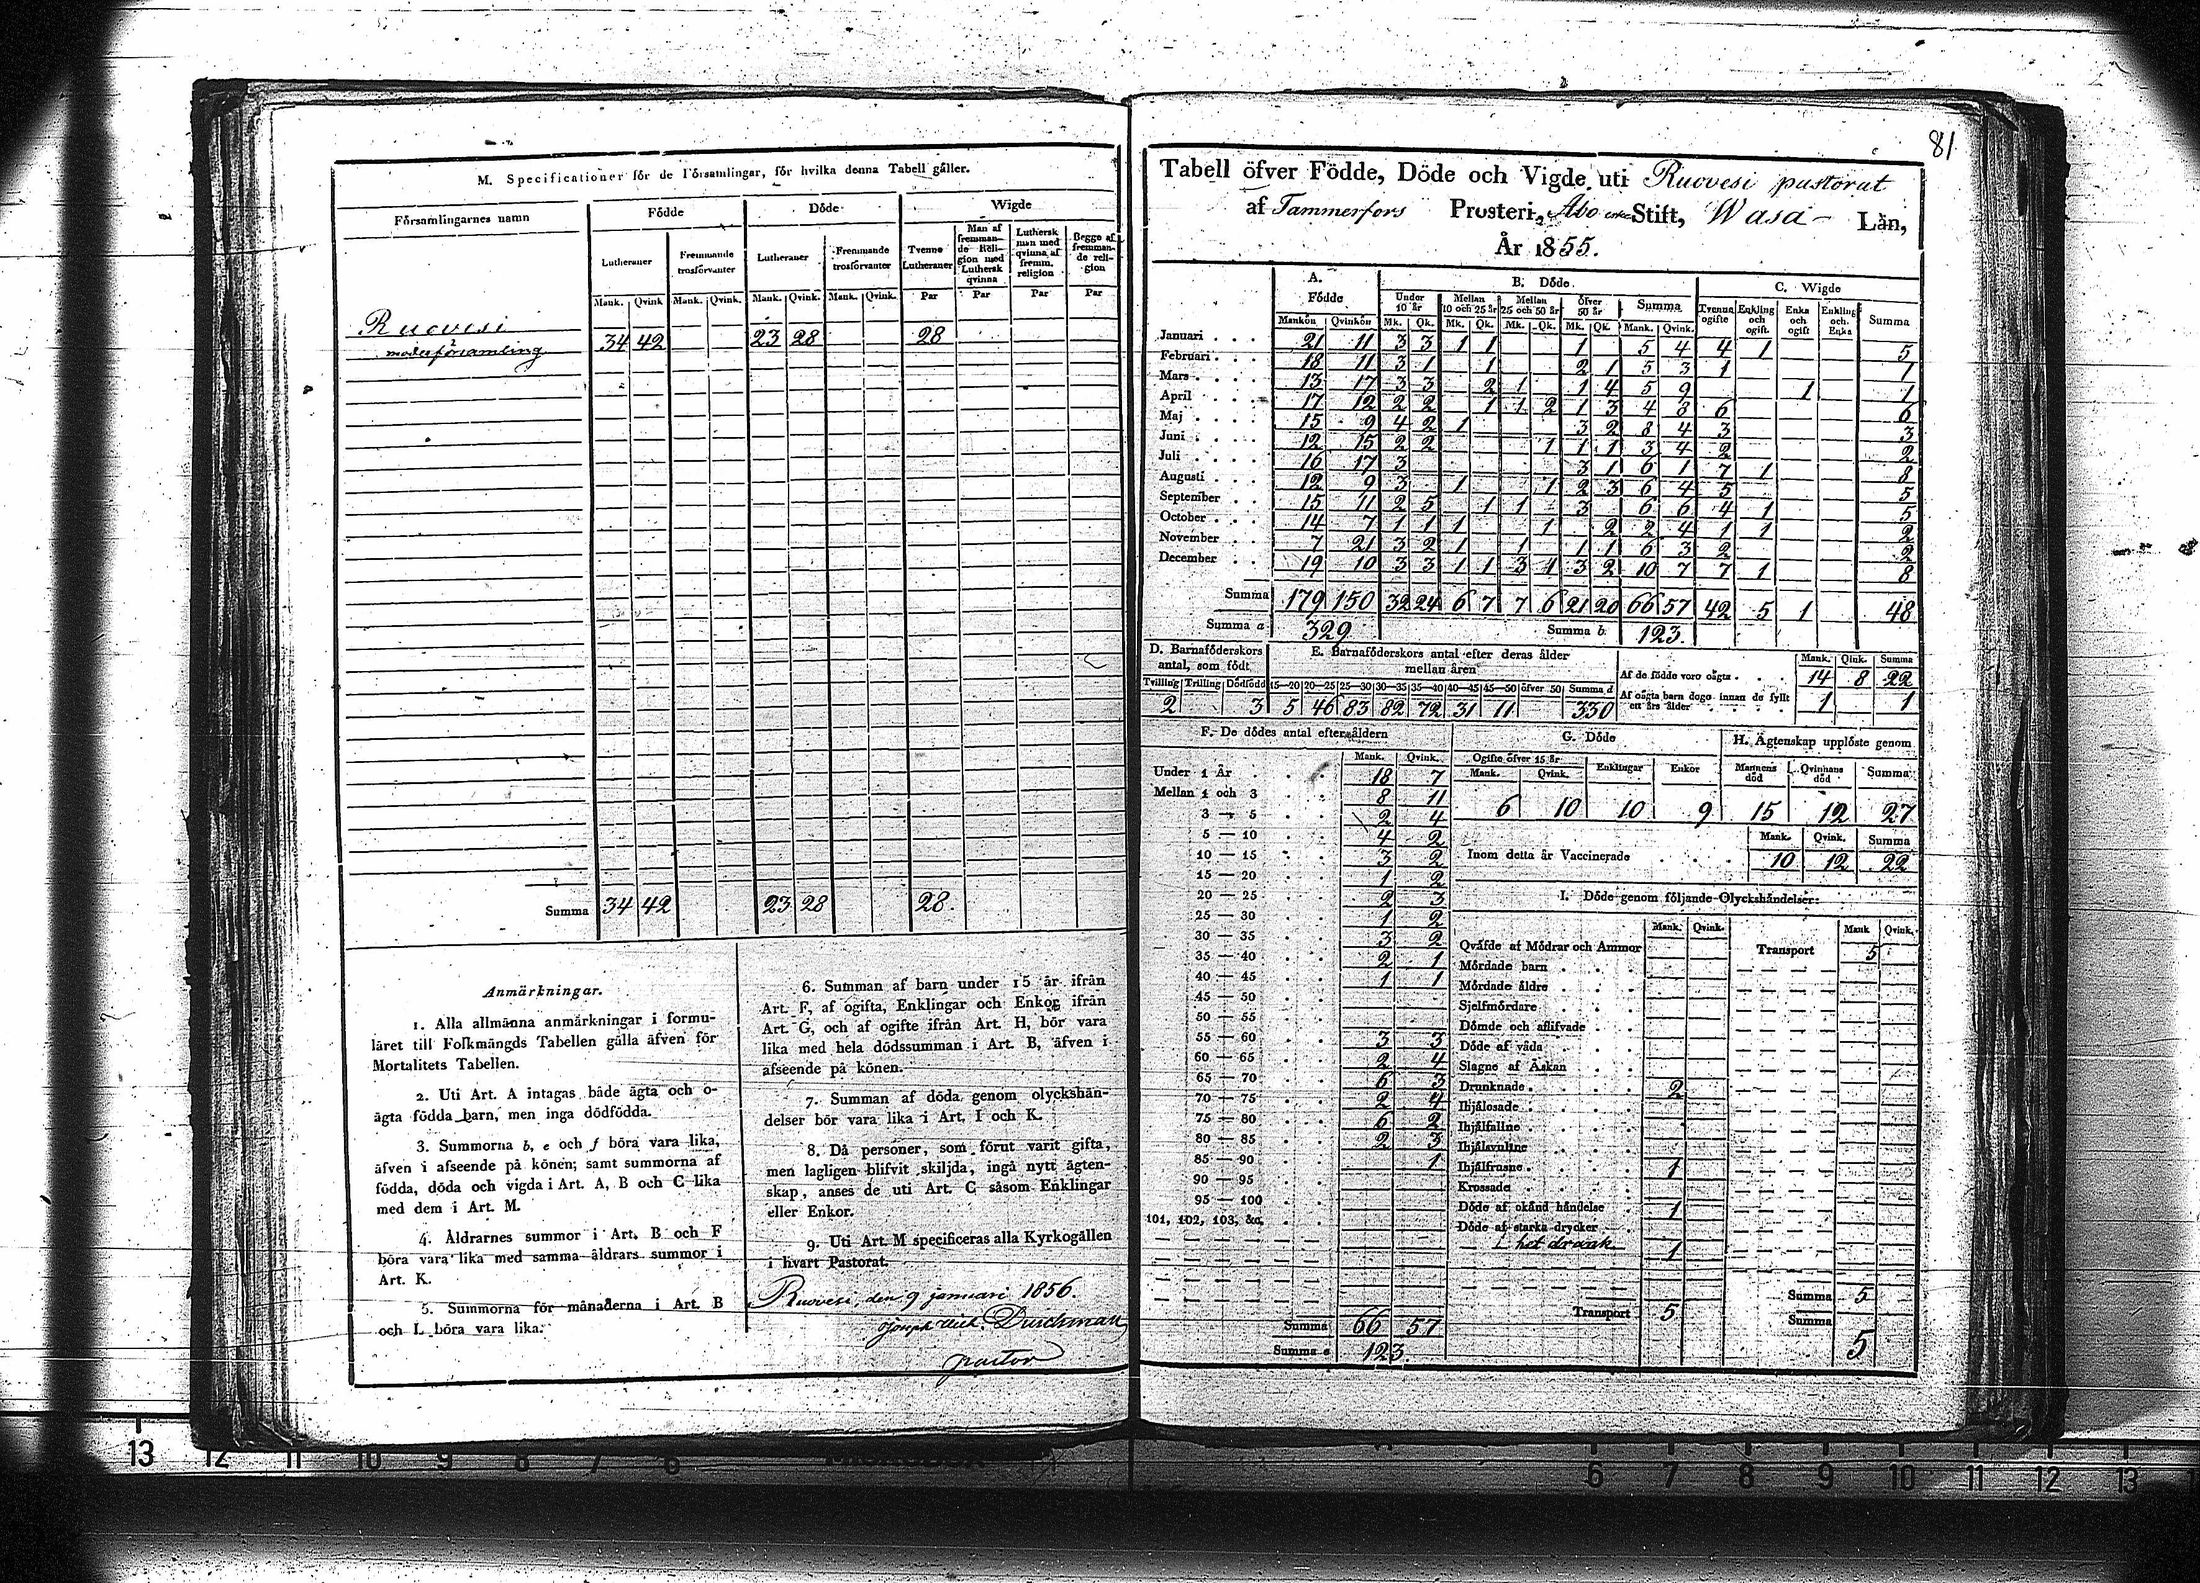 M. Specificationer för de Församlingar, för hvilka denna Tabell gäller.
Församlingarnes namn | Födde | Döde | Wigde
Lutheraner | Fremmande trosförvanter | Lutheraner | Fremmande trosförvanter | Tvenne Lutheraner | Man af fremmande Religion med Luthersk qvinna | Luthersk man med qvinna af fremm. religion | Begge af fremmande religion
Mank. Qvink Mank. Qvink. Mank. Qvink. Mank. Qvink. Par Par Par Par
Ruovesi
moderförsamling 34 42 23 28 28
Summa 34 42 23 28 28.
Anmärkningar.
1. Alla allmänna anmärkningar i formu-
läret till Folkmängds Tabellen gälla äfven för
Mortalitets Tabellen.
2. Uti Art. A intagas både ägta och o-
ägta födda barn, men inga dödfödda.
3. Summorna b, e och f böra vara lika,
äfven i afseende på könen; samt summorna af
födda, döda och vigda i Art. A, B och C lika
med dem i Art. M.
4. Åldrarnes summor i Art. B och F
böra vara lika med samma åldrars summor i
Art. K.
5. Summorna för månaderna i Art. B
och L böra vara lika.
6. Summan af barn under 15 år ifrån
Art. F, af ogifta, Enklingar och Enkor ifrån
Art. G, och af ogifte ifrån Art. H, bör vara
lika med hela dödssumman i Art. B, äfven i
afseende på könen.
7. Summan af döda genom olyckshän-
delser bör vara lika i Art. I och K.
8. Då personer, som förut varit gifta,
men lagligen blifvit skiljda, ingå nytt ägten-
skap, anses de uti Art. C såsom Enklingar
eller Enkor.
9. Uti Art. M specificeras alla Kyrkogällen
i hvart Pastorat.
Ruovesi, den 9 januari 1856.
pastor
81
Tabell öfver Födde, Döde och Vigde uti Ruovesi pastorat
af Tammerfors Prosteri, Åbo Stift, Wasa Län,
År 1855.
A. Födde | B. Döde | C. Wigde
Under 10 år | Mellan 10 och 25 år | Mellan 25 och 50 år | Öfver 50 år | Summa | Tvenne ogifte | Enkling och ogift. | Enka och ogift | Enkling och Enka | Summa
Mankön Qvinkön Mk. Qk. Mk. Qk. Mk. Qk. Mk. Qk. Mank. Qvink.
Januari 21 11 3 3 1 1 1 5 4 4 1 5
Februari 18 11 3 1 1 2 1 5 3 1 1
Mars 13 17 3 3 2 1 1 4 5 9 1 1
April 17 12 2 2 1 1 2 1 3 4 8 6 6
Maj 15 9 4 2 1 3 2 8 4 3 3
Juni 12 15 2 2 1 1 1 3 4 2 2
Juli 16 17 3 3 1 6 1 7 1 8
Augusti 12 9 3 1 1 2 3 6 4 5 5
September 15 11 2 5 1 1 3 6 6 4 1 5
October 14 7 1 1 1 1 2 2 4 1 1 2
November 7 21 3 2 1 1 1 1 6 3 2 2
December 19 10 3 3 1 1 3 1 3 2 10 7 7 1 8
Summa 179 150 32 24 6 7 7 6 21 20 66 57 42 5 1 48
Summa a 329 Summa b 123.
D. Barnaföderskors antal, som födt
Tvilling Trilling Dödfödd
2 3
E. Barnaföderskors antal efter deras ålder mellan åren
15—20 20—25 25—30 30—35 35—40 40—45 45—50 öfver 50 Summa d
5 46 83 82 72 31 11 330
Mank. Qink. Summa
Af de födde voro oägta 14 8 22
Af oägta barn dogo innan de fyllt ett års ålder 1 1
F. De dödes antal efter åldern
Mank. Qvink.
Under 1 År 18 7
Mellan 1 och 3 8 11
3 — 5 2 4
5 — 10 4 2
10 — 15 3 2
15 — 20 1 2
20 — 25 2 3
25 — 30 1 2
30 — 35 3 2
35 — 40 2 1
40 — 45 1 1
45 — 50
50 — 55
55 — 60 3 3
60 — 65 2 4
65 — 70 6 3
70 — 75 2 4
75 — 80 6 2
80 — 85 2 3
85 — 90 1
90 — 95
95 — 100
101, 102, 103, &c.
Summa 66 57
Summa e 123.
G. Döde
Ogifte öfver 15 år | Enklingar | Enkor
Mank. Qvink.
6 10 10 9
H. Ägtenskap upplöste genom
Mannens död | Qvinnans död | Summa
15 12 27
Mank. Qvink. Summa
Inom detta år Vaccinerade 10 12 22
I. Döde genom följande Olyckshändelser:
Mank. Qvink. Mank Qvink.
Qväfde af Mödrar och Ammor
Mördade barn
Mördade äldre
Sjelfmördare
Dömde och aflifvade
Döde af våda
Slagne af Åskan
Drunknade 2
Ihjälosade
Ihjälfallne
Ihjälsvultne
Ihjälfrusne 1
Krossade
Döde af okänd händelse 1
Döde af starka drycker
I het drank 1
Transport 5
Transport 5
Summa 5
Summa 5
6 7 8 9 10 11 12 13
13 12 11 10 9 8 7 6